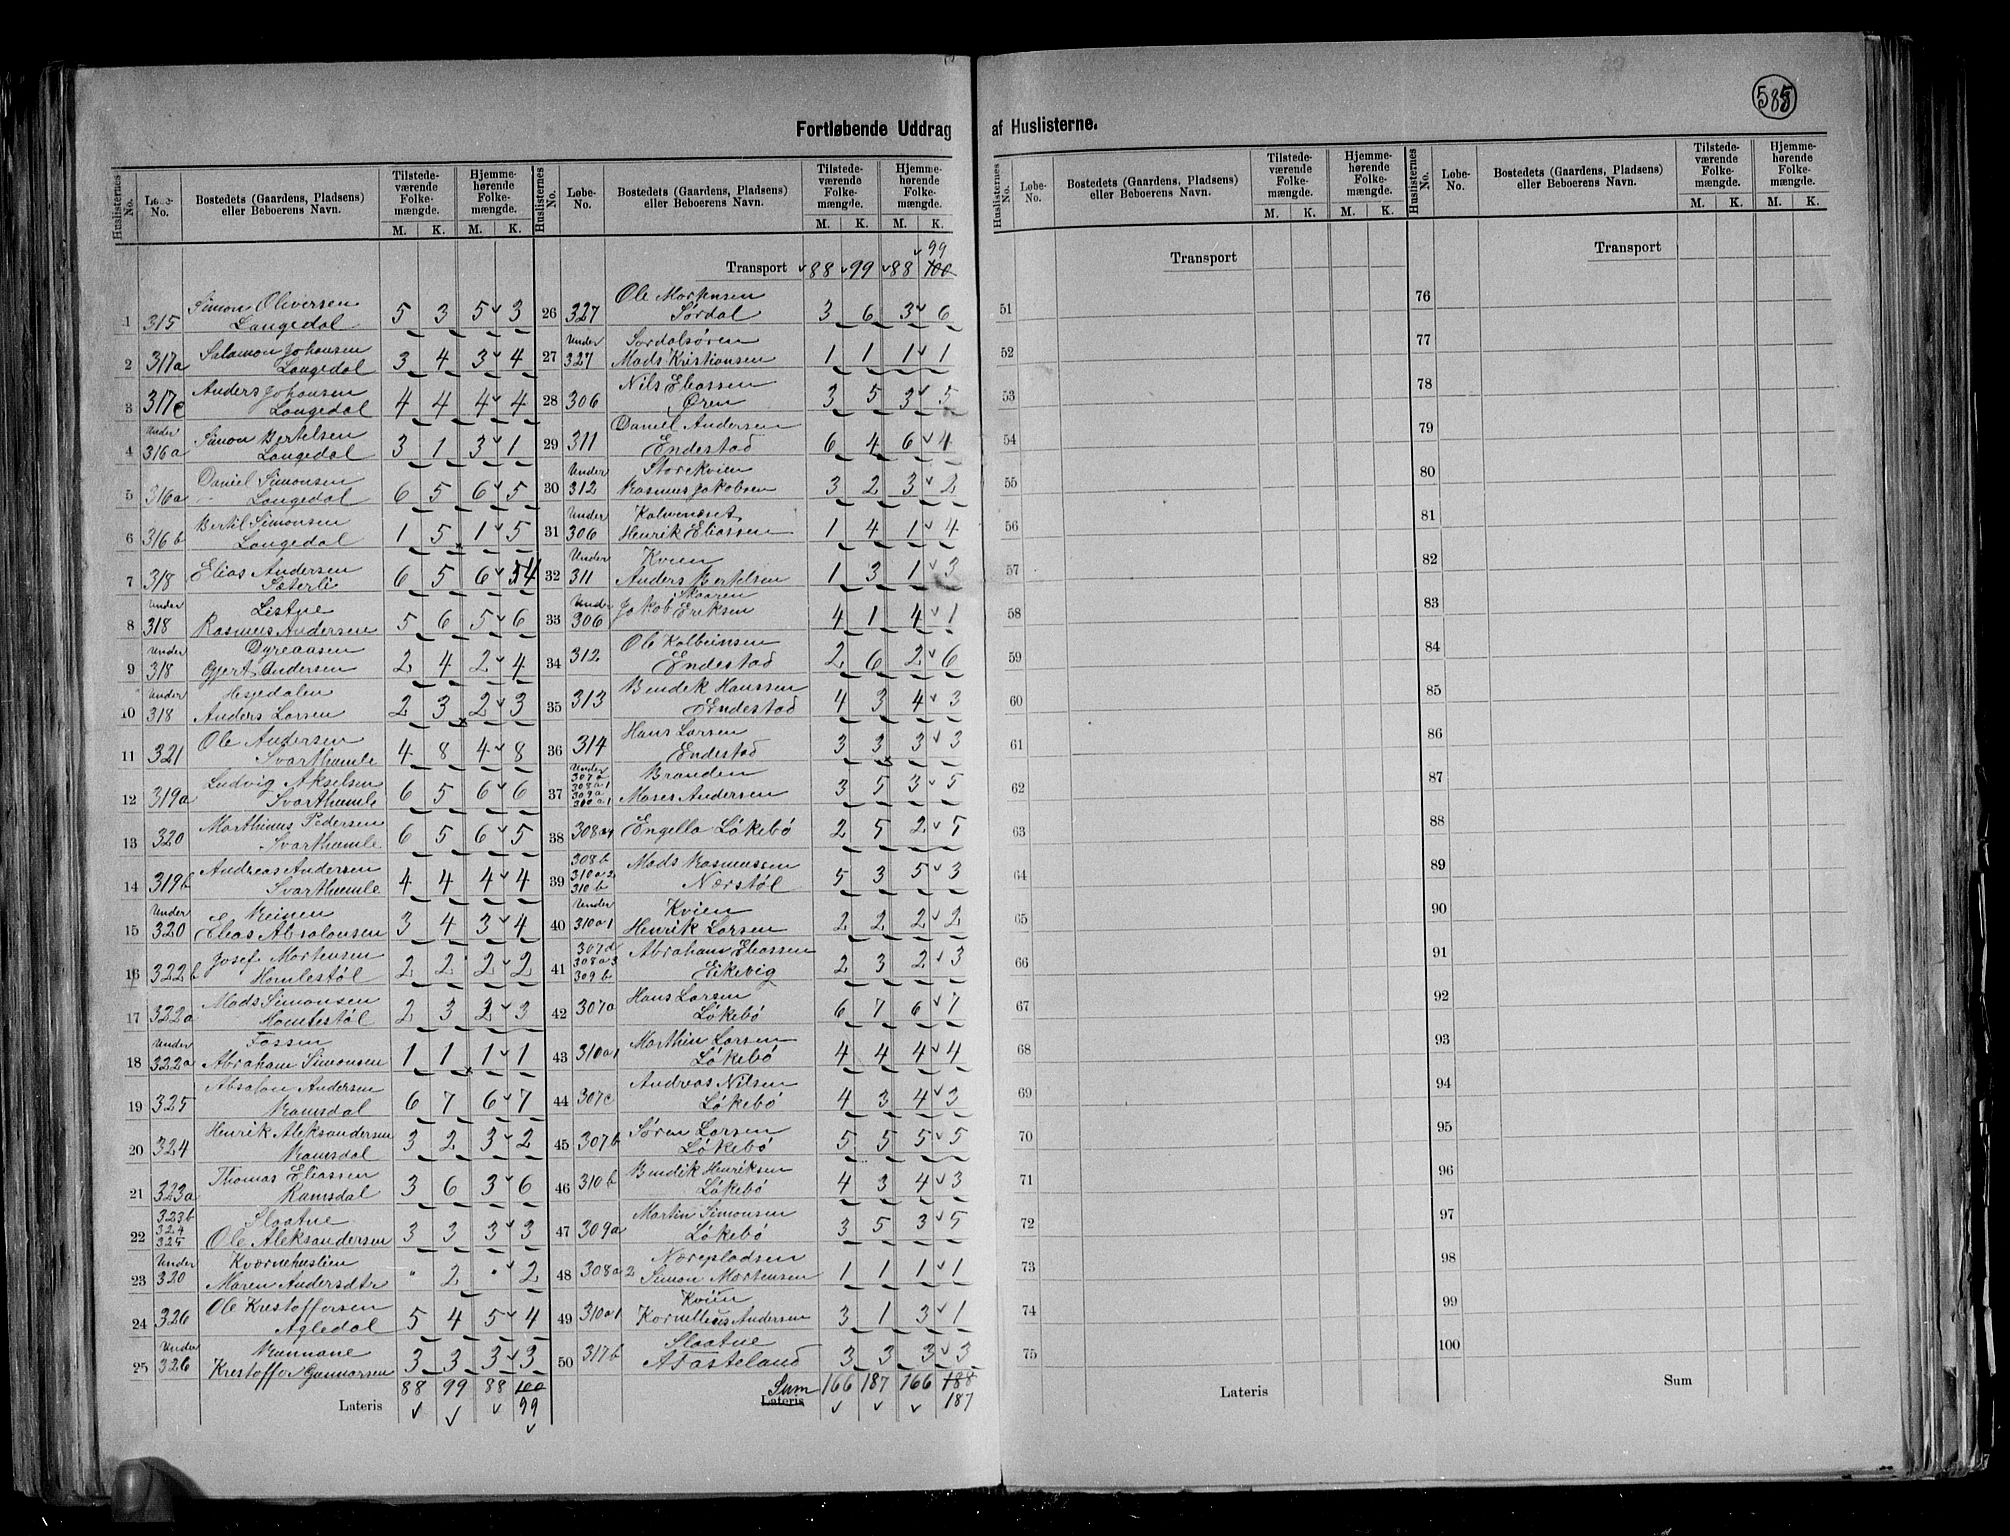 585
Fortløbende Uddrag af Huslisterne.
Huslisternes No. Løbe-No. Bostedets (Gaardens, Pladsens) eller Beboerens Navn. Tilstedeværende Folkemængde. Hjemmehørende Folkemængde.
M. K. M. K.
1 315 Simon Oliversen
Langedal 5 3 5 3
2 317a Salamon Johansen
Langedal 3 4 3 4
3 317c Anders Johansen
Langedal 4 4 4 4
4 Under 316a Simon Bertelsen
Langedal 3 1 3 1
5 316a Daniel Simonsen
Langedal 6 5 6 5
6 316b Bertil Simonsen
Langedal 1 5 1 5
7 318 Elias Andersen
Sæterli 6 5 6 5 4
8 Under 318 Listue
Rasmus Andersen 5 6 5 6
9 Under 318 Dyreaasen
Gjert Andersen 2 4 2 4
10 Under 318 Hesjedalen
Anders Larsen 2 3 2 3
11 321 Ole Andersen
Svarthumle 4 8 4 8
12 319a Ludvig Akselsen
Svarthumle 6 5 6 6
13 320 Marthinus Pedersen
Svarthumle 6 5 6 5
14 319b Andreas Andersen
Svarthumle 4 4 4 4
15 Under 320 Reinen
Elias Absalonsen 3 4 3 4
16 322b Josef Mortensen
Homlestøl 2 2 2 2
17 322a Mads Simonsen
Homlestøl 2 3 2 3
18 Under 322a Fossen
Abraham Simonsen 1 1 1 1
19 325 Absalon Andersen
Ramsdal 6 7 6 7
20 324 Henrik Aleksandersen
Ramsdal 3 2 3 2
21 323a Thomas Eliassen
Ramsdal 3 6 3 6
22 323b 324 325 Slaatne
Ole Aleksandersen 3 3 3 3
23 Under 320 Kværnehuslien
Maren Andersdtr " 2 " 2
24 326 Ole Kristoffersen
Agledal 5 4 5 4
25 Under 326
Kristoffer Gunnarsen 3 3 3 3
Lateris 88 99 88 100
99
Huslisternes No. Løbe-No. Bostedets (Gaardens, Pladsens) eller Beboerens Navn. Tilstedeværende Folkemængde. Hjemmehørende Folkemængde.
M. K. M. K.
99
Transport 88 99 88 100
26 327 Ole Mortensen
Sørdal 3 6 3 6
27 Under 327 Sørdalsøren
Mads Kristiansen 1 1 1 1
28 306 Nils Eliassen
Øren 3 5 3 5
29 311 Daniel Andersen
Endestad 6 4 6 4
30 Under 312 Storekvien
Rasmus Jakobsen 3 2 3 2
31 Under 306 Kalveneset
Henrik Eliassen 1 4 1 4
32 Under 311 Kvien
Anders Bertelsen 1 3 1 3
33 Under 306 Skaaren
Jakob Eriksen 4 1 4 1
34 312 Ole Kolbeinsen
Endestad 2 6 2 6
35 313 Bendik Hanssen
Endestad 4 3 4 3
36 314 Hans Larsen
Endestad 3 3 3 3
37 Under 307a 308a1 309a 310a1 Branden
Moses Andersen 3 5 3 5
38 308a4 Engella Løkebø 2 5 2 5
39 308b 310a2 310b Mads Rasmussen
Nærstøl 5 3 5 3
40 Under 310a1 Kvien
Henrik Larsen 2 2 2 2
41 307d 308a3 309b Abraham Eliassen
Eikevig 2 3 2 3
42 307a Hans Larsen
Løkebø 6 7 6 7
43 310a1 Marthin Larsen
Løkebø 4 4 4 4
44 307c Andreas Nilsen
Løkebø 4 3 4 3
45 307b Søren Larsen
Løkebø 5 5 5 5
46 310b Bendik Henriksen
Løkebø 4 3 4 3
47 309a Martin Simonsen
Løkebø 3 5 3 5
48 308a2 Nærepladsen
Simon Mortensen 1 1 1 1
49 310a1 Kvien
Kornelius Andersen 3 1 3 1
50 317b Slaatne
A Fasteland 3 3 3 3
Sum Lateris 166 187 166 188
187
Huslisternes No. Løbe-No. Bostedets (Gaardens, Pladsens) eller Beboerens Navn. Tilstedeværende Folkemængde. Hjemmehørende Folkemængde.
M. K. M. K.
Transport
51
52
53
54
55
56
57
58
59
60
61
62
63
64
65
66
67
68
69
70
71
72
73
74
75
Lateris
Huslisternes No. Løbe-No. Bostedets (Gaardens, Pladsens) eller Beboerens Navn. Tilstedeværende Folkemængde. Hjemmehørende Folkemængde.
M. K. M. K.
Transport
76
77
78
79
80
81
82
83
84
85
86
87
88
89
90
91
92
93
94
95
96
97
98
99
100
Sum